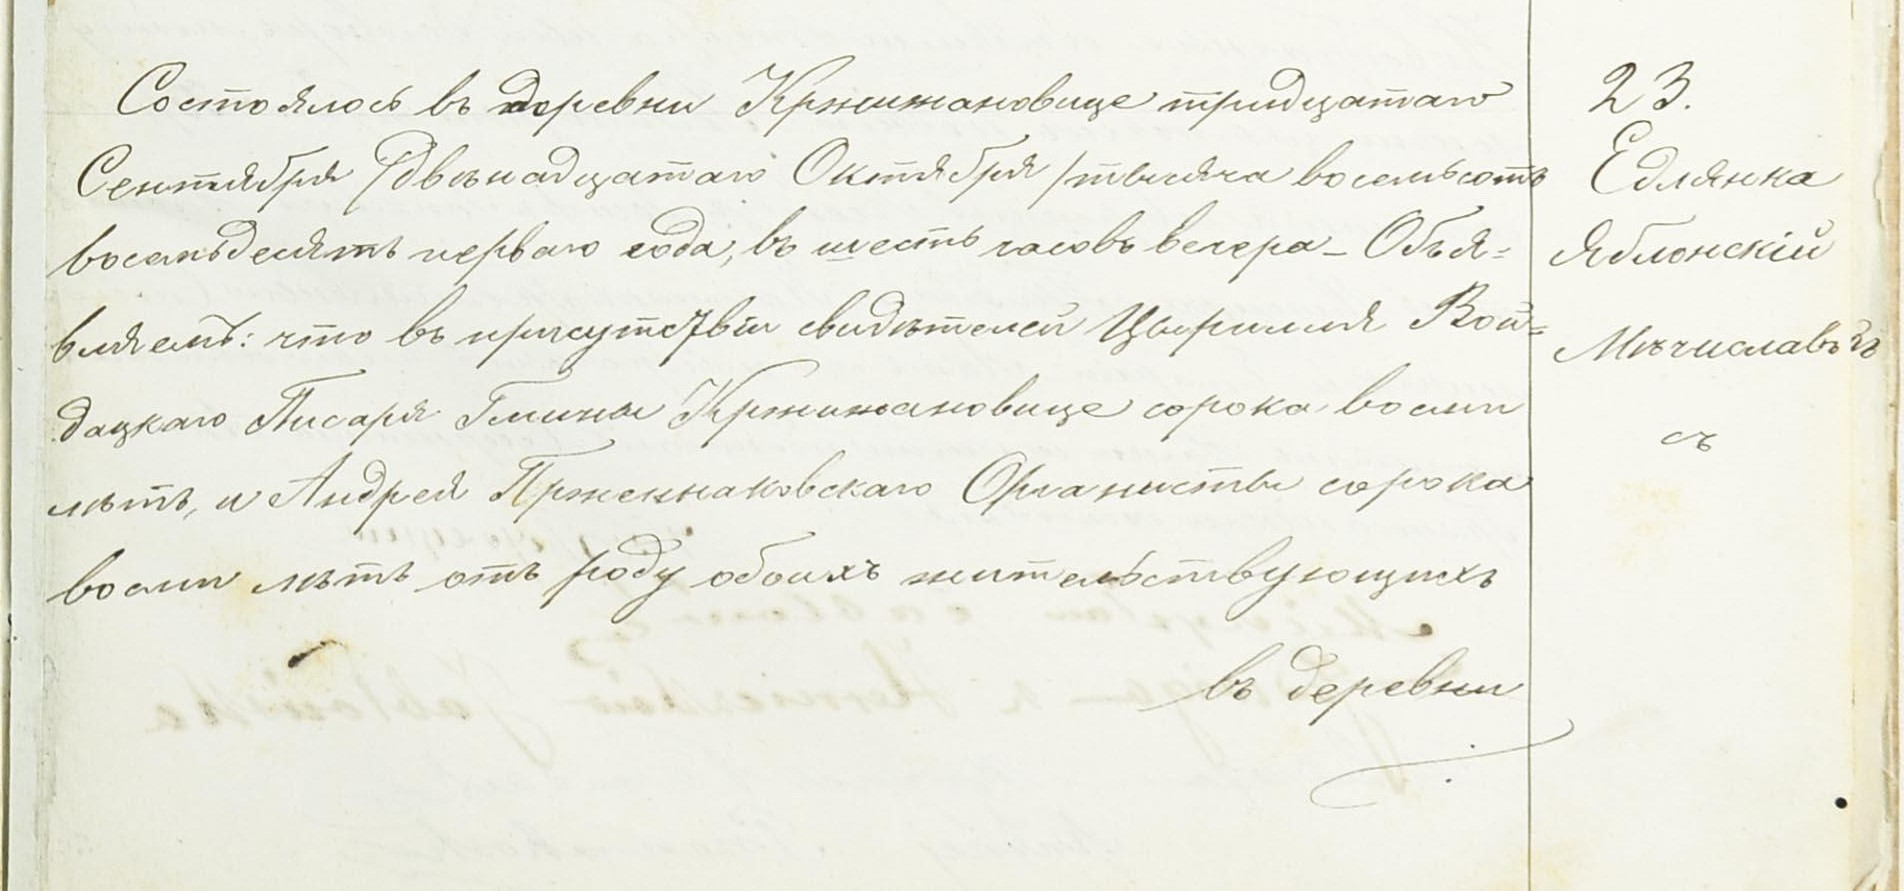 Состоялось въ деревни Кржижановице тридцатаго
Сентября /двѣнадцатаго Октября/ тысяча восемьсотъ
восемьдесятъ перваго года, въ шесть часовъ вечера – Объя=
вляемъ: что въ присутствіи свидѣтелей Цирилля Вой=
дацкаго Писаря Гмины Кржижановице сорока восми
лѣтъ, и Андрея Прженнаковскаго Органисты сорока
восми лѣтъ отъ роду обоихъ жительствующихъ
въ деревни
23.
Едлянка
Яблонскій
Мѣчиславъ